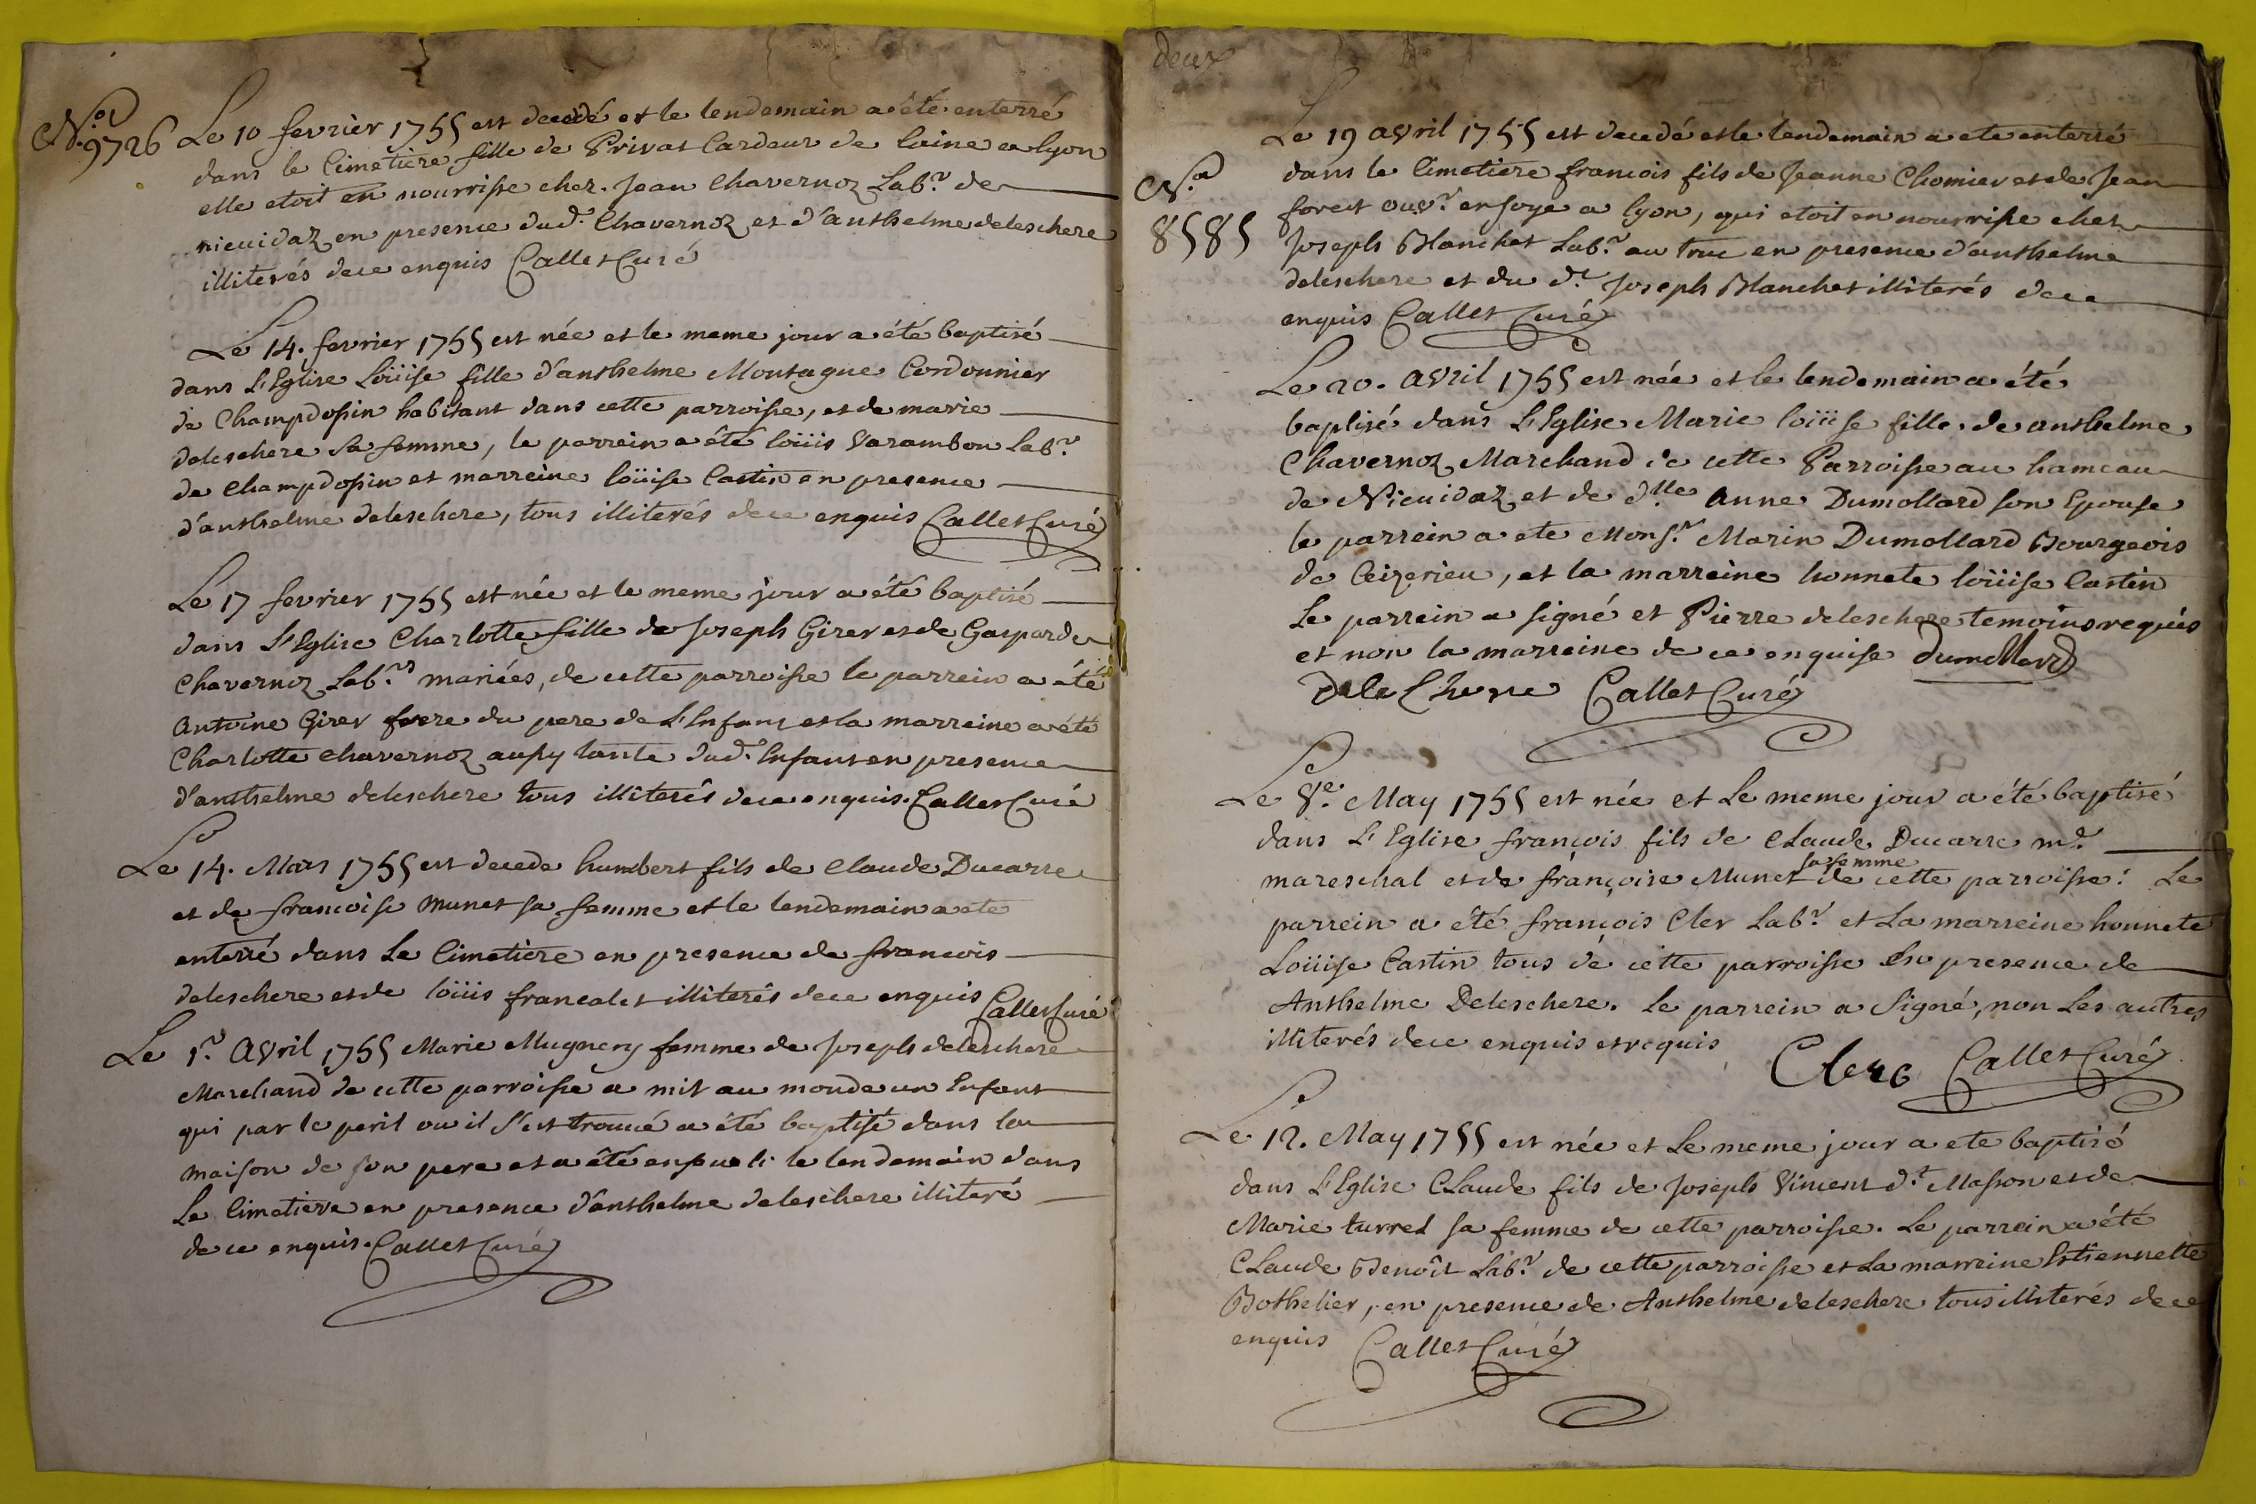 N.a 9726
Le 10 fevrier 1755 est decedé et le lendemain a été enterré
dans le Cimetière fille de Privat Cardeur de laine a lyon
elle etoit en nourrisse chez Jean Chavernoz Lab.r de
nieuidaz en presence dud.t Chavernoz et d'anthelme deleschere
illiterés de ce enquis Callet Curé
Le 14. fevrier 1755 est née et le meme jour a été baptisé
dans L'Eglise Loüise fille d'anthelme Montague Cordonnier
de Champdossin habitant dans cette parroisse, et de marie
deleschere sa femme, le parrein a été loüis Varambon Lab.r
de Champdossin et marreine loüise Castin en presence
d'anthelme deleschere, tous illiterés de ce enquis Callet Curé
Le 17 fevrier 1755 est née et le meme jour a été baptisé
dans L'Eglise Charlotte fille de Joseph Girer et de Gasparde
Chavernoz Lab.rs mariées, de cette parroisse le parrein a été
Antoine Girer frere du pere de L'Enfant et la marreine a été
Charlotte Chavernoz aussy tante dud.t Enfant en presence
d'anthelme deleschere tous illiterés de ce enquis. Callet Curé
Le 14. Mars 1755 est decede humbert fils de Claude Ducarre
et de francoise Munet sa femme et le lendemain a ete
enterré dans Le Cimetière en presence de francois
deleschere et de loüis francalet illiterés de ce enquis Callet Curé
Le 1.r Avril 1755 Marie Mugnery femme de Joseph deleschere
Marchand de cette parroisse a mit au monde un Enfant
qui par le peril ou il s'est trouué a été baptisé dans la
maison de son pere et a été enseueli le lendemain dans
Le Cimetiere en presence d'anthelme deleschere illiteré
de ce enquis. Callet Curé
deux
N.a
8585
Le 19 avril 1755 est decedé et le lendemain a ete enterré
dans le Cimetiere francois fils de Jeanne Chomier et de Jean
forest ouv.r en soye a lyon, qui etoit en nourrisse chez
Joseph Blanchet Lab.r au truc en presence d'anthelme
deleschere et du d.t Joseph Blanchet illiterés de ce
enquis Callet Curé
Le 20. Avril 1755 est née et le lendemain a été
baptisé dans L'Eglise Marie loüise fille de anthelme
Chavernoz Marchand de cette Parroisse au hameau
de Nieuidaz et de d.lle Anne Dumollard son Epouse
le parrein a ete Mons.r Marin Dumollard Bourgeois
de Ceizerieu, et la marreine honnete loüise Castin
Le parrein a signé et Pierre deleschere temoins requis
et non la marreine de ce enquise Dumollard
Delechere Callet Curé
Le 8.e May 1755 est née et Le meme jour a été baptisé
dans L'Eglise françois fils de Claude Ducarre m.d
mareschal et de françoise Munet sa femme de cette parroisse. Le
parrein a été françois Cler Lab.r et La marreine honnete
Loüise Castin tous de cette parroisse En presence de
Anthelme Deleschere. Le parrein a Signé, non Les autres
illiterés de ce enquis et requis Clerc Callet Curé
Le 12. May 1755 est née et Le meme jour a ete baptisé
dans L'Eglise Claude fils de Joseph Vincent d.t Masson et de
Marie turrel sa femme de cette parroisse. Le parrein a été
Claude Benoît Lab.r de cette parroisse et La marreine Estiennette
Bothelier, en presence de Anthelme deleschere tous illiterés de ce
enquis Callet Curé